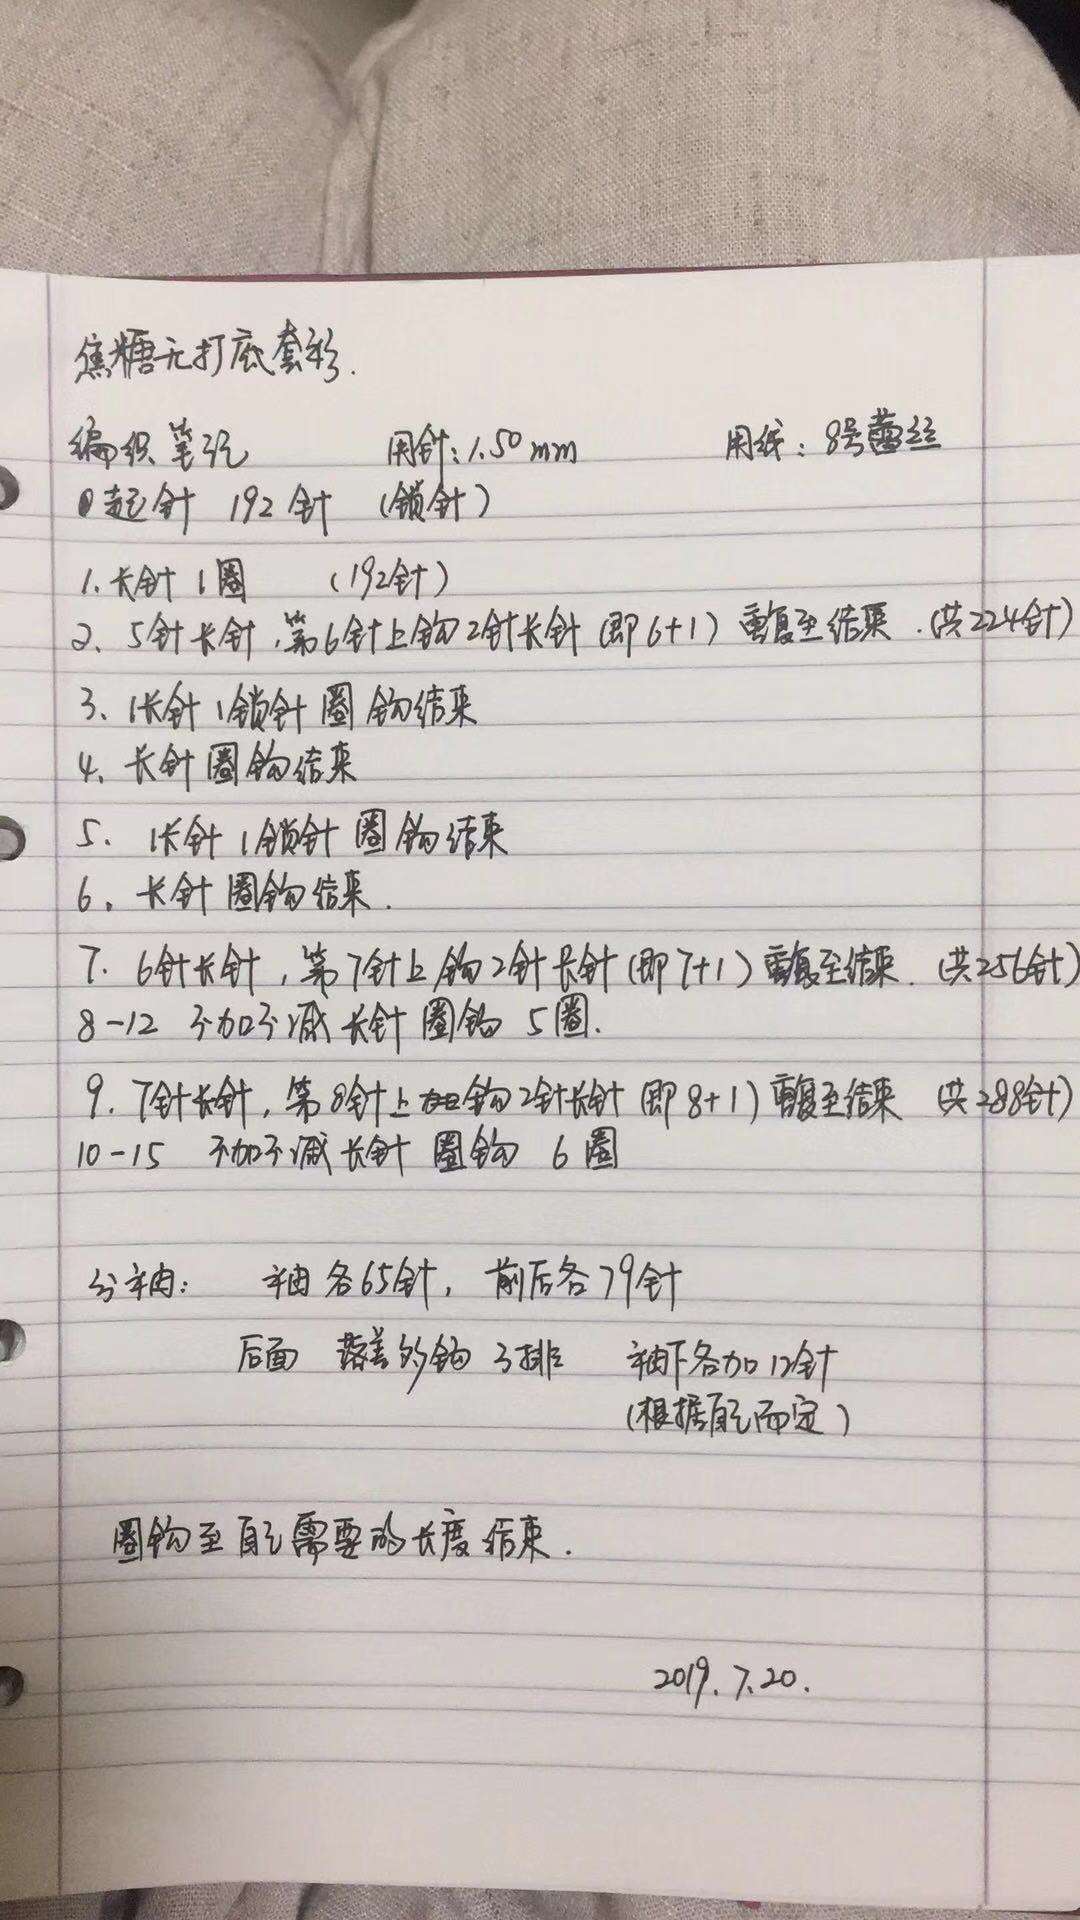 焦糖无打底套衫.
编织笔记 用针:1.50mm 用线:8号蕾丝
起针 192针 (锁针)
1.长针1圈 (192针)
2、5针长针,第6针上钩2针长针(即6+1)重复至结束.(共224针)
3、1长针1锁针圈钩结束
4、长针圈钩结束
5、1长针1锁针圈钩结束
6、长针圈钩结束.
7.6针长针,第7针上钩2针长针(即7+1)重复至结束.(共256针)
8-12 不加不减长针圈钩5圈.
9.7针长针,第8针上钩2针长针(即8+1)重复至结束(共288针)
10-15 不加不减长针圈钩6圈
分袖: 袖各65针,前后各79针
后面 落差的钩3排 袖下各加12针
(根据自己而定)
圈钩至自己需要的长度结束.
2019.7.20.